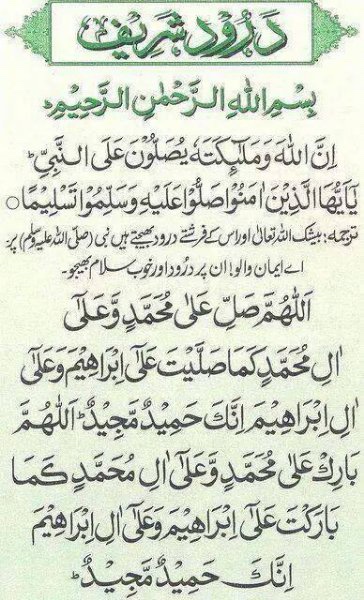 دُرُود شریف
بِسْمِ اللهِ الرَّحْمٰنِ الرَّحِيْمِ
اِنَّ اللهَ وَمَلٰٓئِكَتَهٗ يُصَلُّوْنَ عَلَى النَّبِيِّ ؕ
يٰٓاَيُّهَا الَّذِيْنَ اٰمَنُوْا صَلُّوْا عَلَيْهِ وَسَلِّمُوْا تَسْلِيْمًا ○
ترجمہ: بیشک اللہ تعالیٰ اور اس کے فرشتے درود بھیجتے ہیں نبی (صلی اللہ علیہ وسلم) پر
اے ایمان والو! ان پر درُود اور خوب سلام بھیجو۔
اَللّٰهُمَّ صَلِّ عَلٰى مُحَمَّدٍ وَّعَلٰٓى
اٰلِ مُحَمَّدٍ كَمَا صَلَّيْتَ عَلٰٓى اِبْرَاهِيْمَ وَعَلٰٓى
اٰلِ اِبْرَاهِيْمَ اِنَّكَ حَمِيْدٌ مَّجِيْدٌ ؕ اَللّٰهُمَّ
بَارِكْ عَلٰى مُحَمَّدٍ وَّعَلٰٓى اٰلِ مُحَمَّدٍ كَمَا
بَارَكْتَ عَلٰٓى اِبْرَاهِيْمَ وَعَلٰٓى اٰلِ اِبْرَاهِيْمَ
اِنَّكَ حَمِيْدٌ مَّجِيْدٌ ؕ